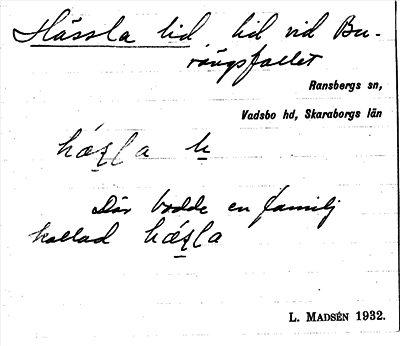 Hässla lid, lid vid Bu-
rängsfallet
Ransbergs sn,
Vadsbo hd, Skaraborgs län
Där bodde en familj
kallad
L. MADSÉN 1932.